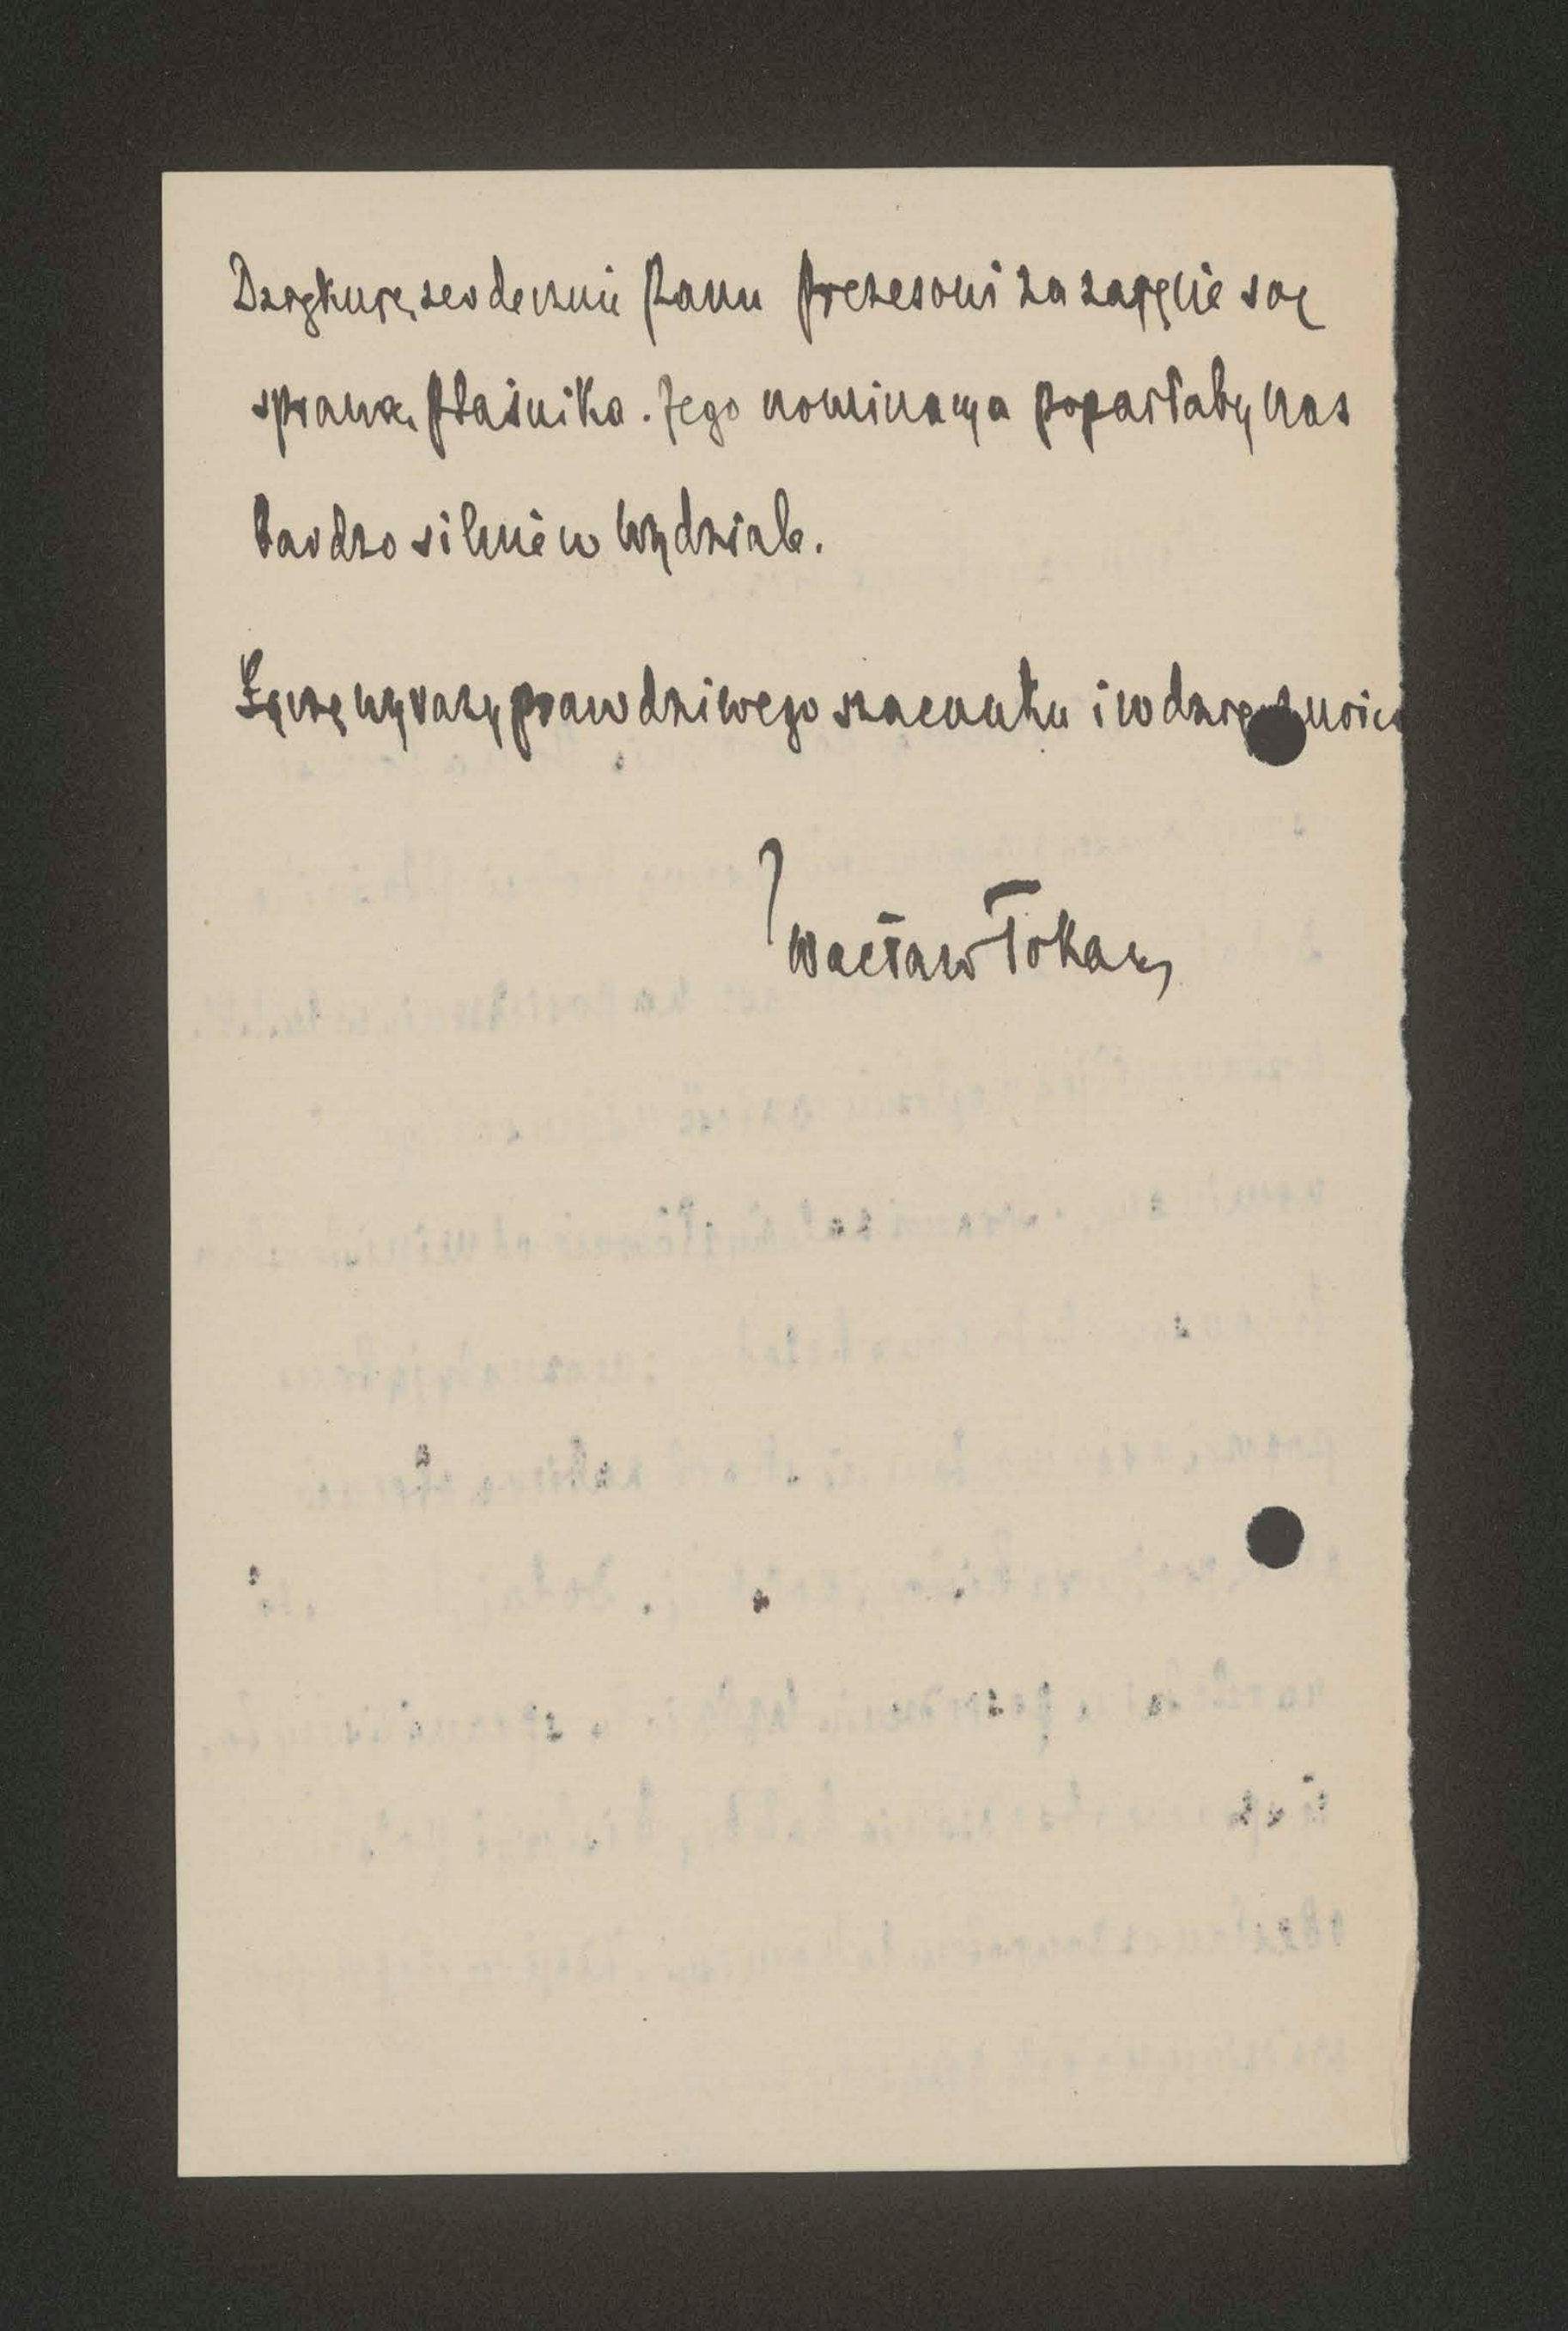 Dziękuję serdecznie Panu Prezesowi za zajęcie się
sprawą Ptaśnika. Jego nominacya poparłaby nas
bardzo silnie w Wydziale.
Łączę wyrazy prawdziwego szacunku i wdzięczności
Wacław Tokarz